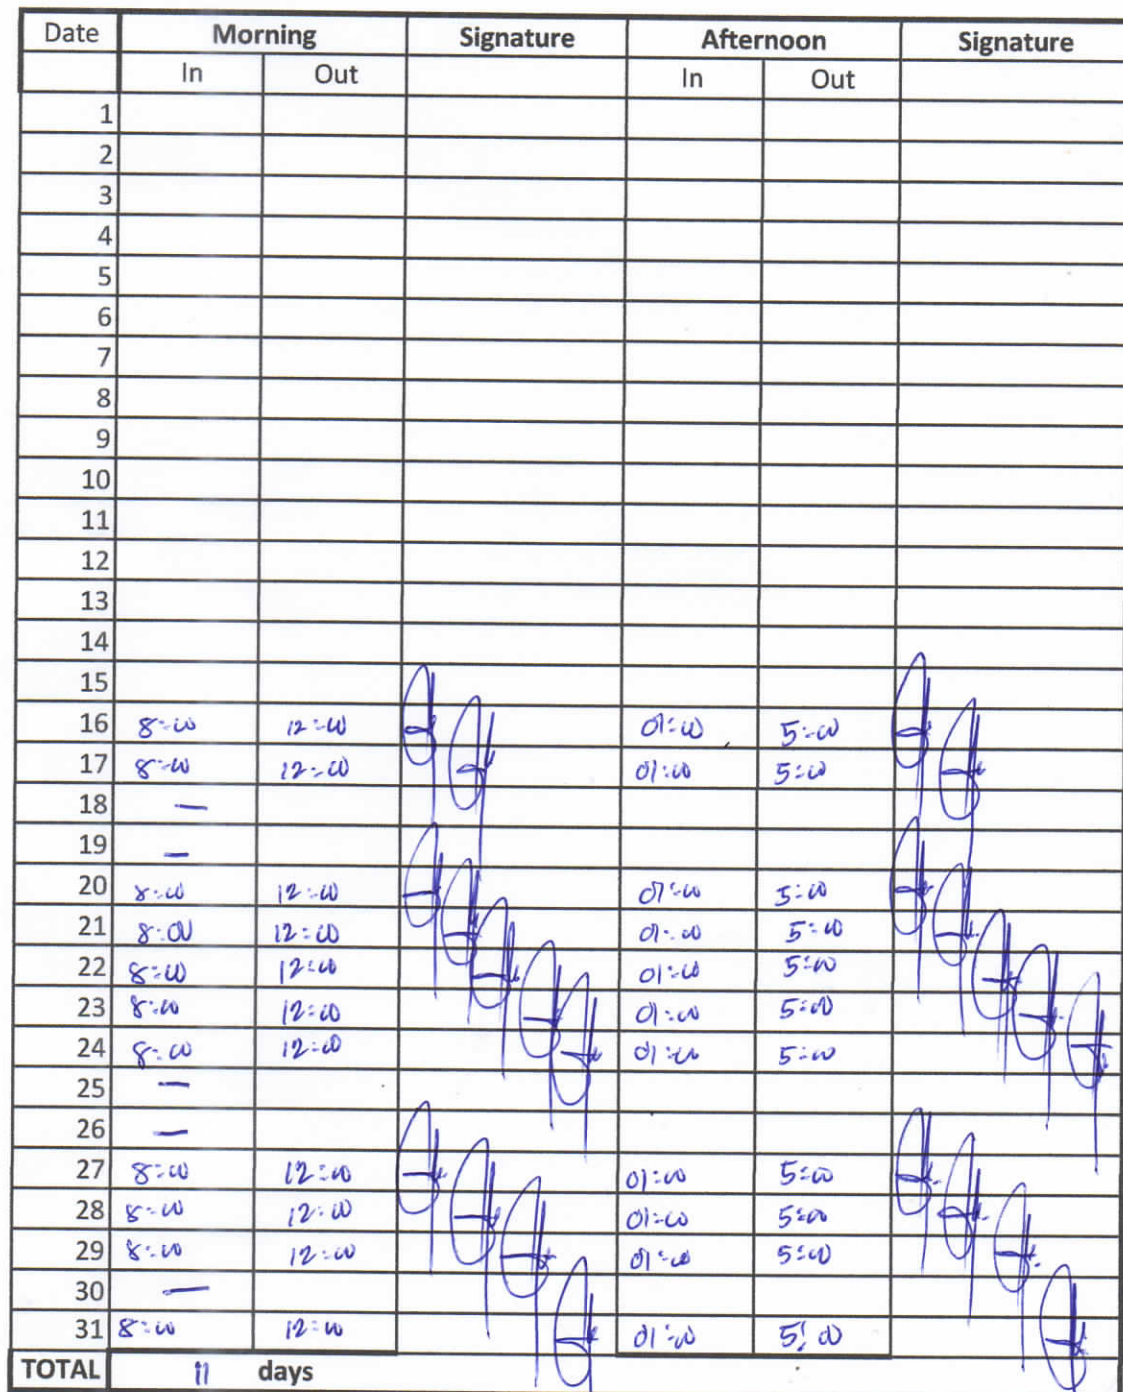 Date Morning Signature Afternoon Signature
In Out In Out
1
2
3
4
5
6
7
8
9
10
11
12
13
14
15
16 8:00 12:00 01:00 5:00
17 8:00 12:00 01:00 5:00
18 —
19 —
20 8:00 12:00 01:00 5:00
21 8:00 12:00 01:00 5:00
22 8:00 12:00 01:00 5:00
23 8:00 12:00 01:00 5:00
24 8:00 12:00 01:00 5:00
25 —
26 —
27 8:00 12:00 01:00 5:00
28 8:00 12:00 01:00 5:00
29 8:00 12:00 01:00 5:00
30 —
31 8:00 12:00 01:00 5:00
TOTAL 11 days